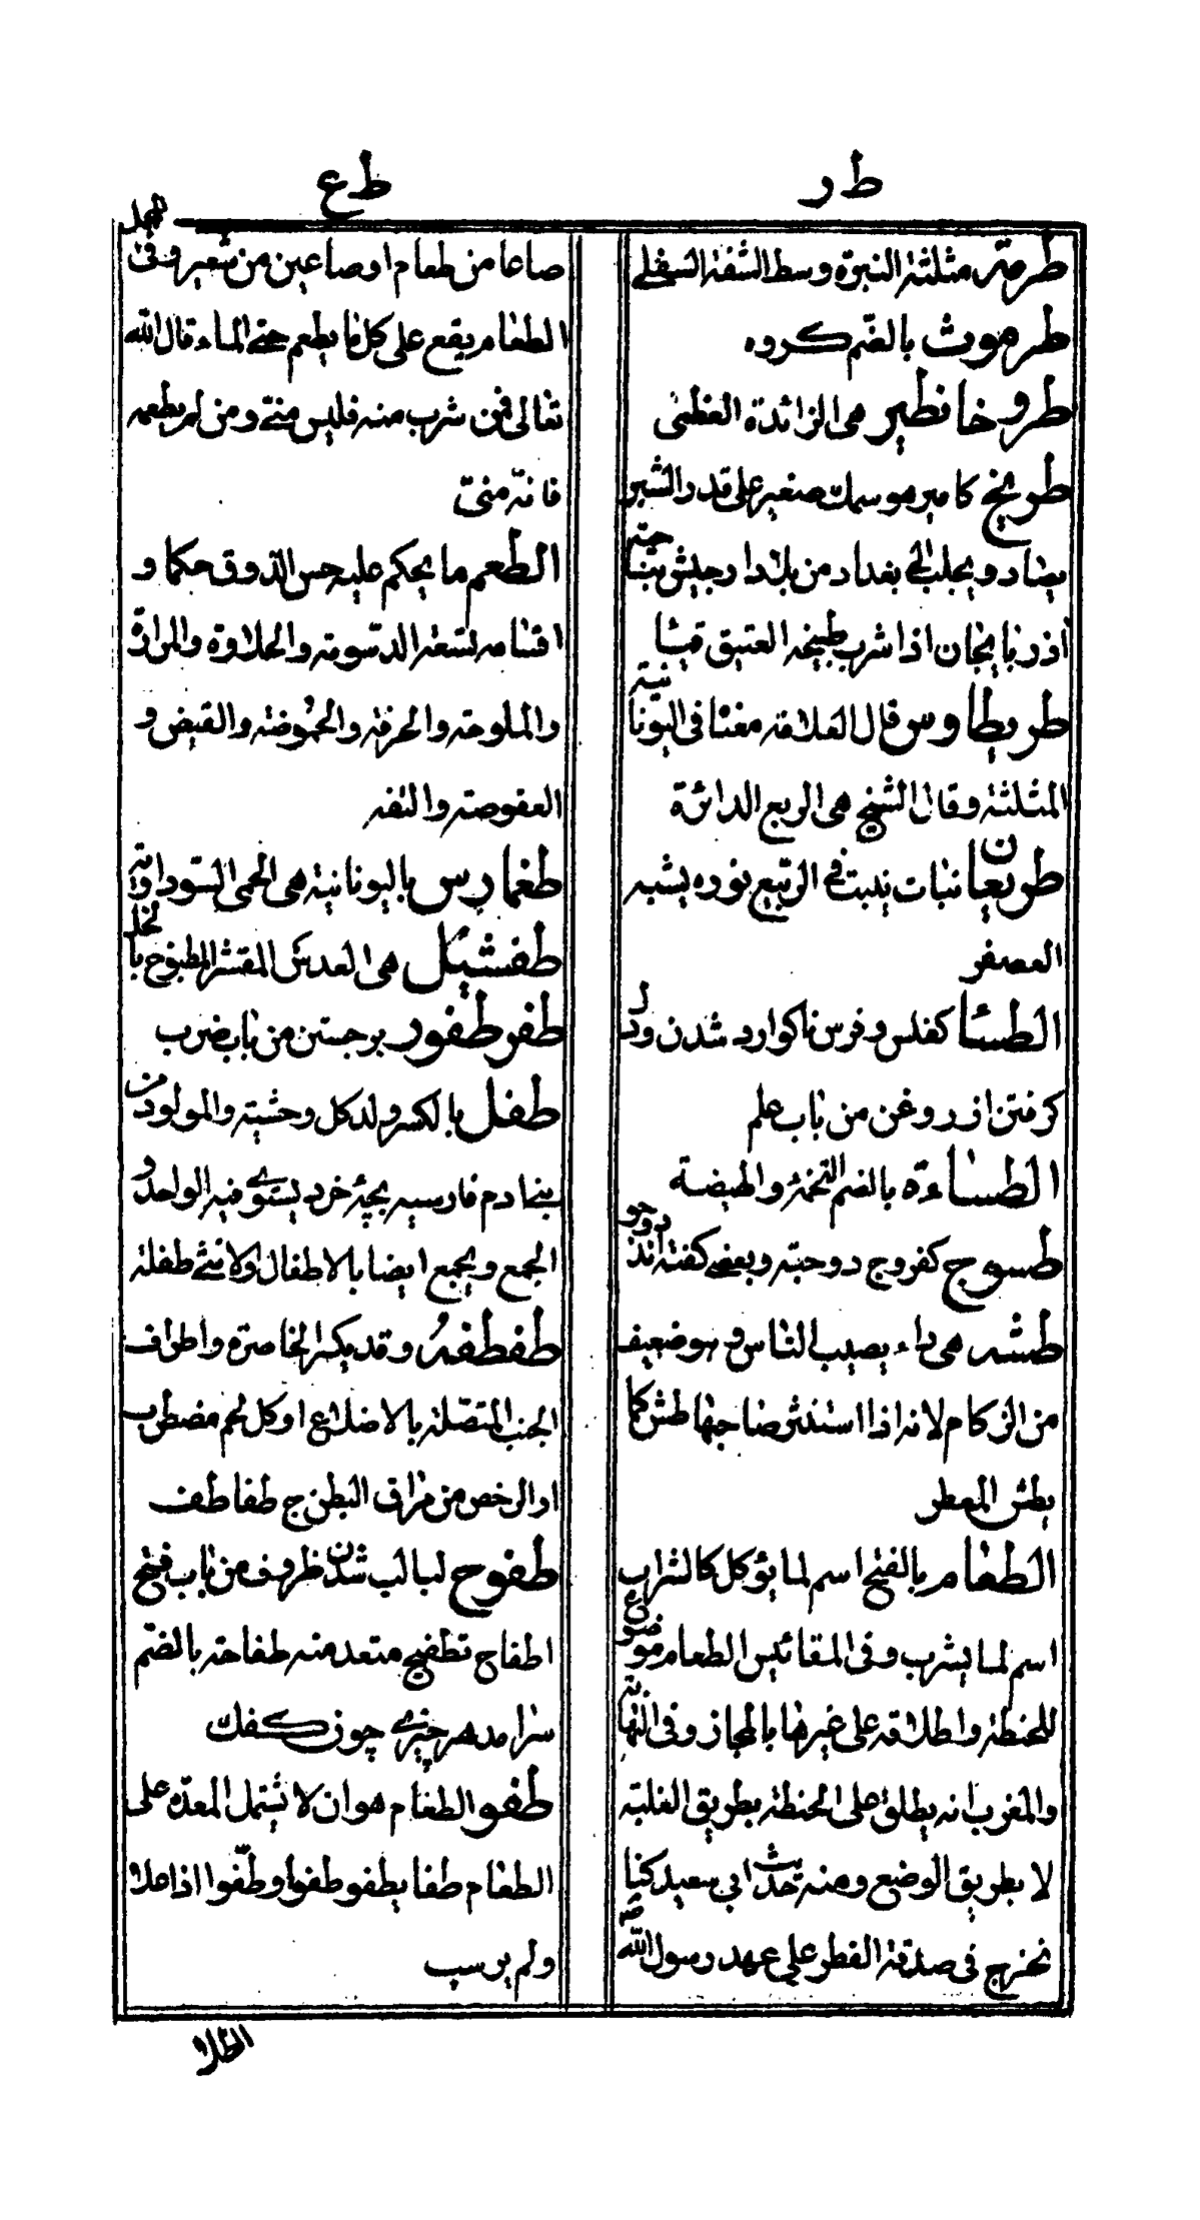 ط ر
طرمة مثلثة النبرة وسط الشفة السفلى
طرموث بالضم كروه
طروخانطير هى الزائدة العظمى
طريخ كامير هو سمك صغير على قدر الشبر
يصاد ويجلب الى بغداد من بلاد ارجيش بناحية
اذربايجان اذا شرب طبيخه العتيق قيئا
طريطاوس قال العلاقه معناه فى اليونانية
المثلثة وقال الشيخ هى الربع الدائرة
طويعان نبات ينبت فى الربيع نوره يشبه
العصفر
الطسأ كفلس وفرس ناكوارد شدن ودل
كرفتن از روغن من باب علم
الطساءة بالضم التخمة والهيضة
طسوج كفروج دوحبه وبعضى كفته اند دو جو
طشه هى داء يصيب الناس وهو ضعيف
من الزكام لانه اذا استنثر صاحبها طش كما
يطش المطر
الطعام بالفتح اسم لما يؤكل كالشراب
اسم لما يشرب وفى المقائيس الطعام موضوع
للحنطة واطلاقه على غيرها بالمجاز وفى النهاية
والمغرب انه يطلق على الحنطة بطريق الغلبة
لا بطريق الوضع ومنه حديث ابى سعيد كنا
نخرج فى صدقة الفطر على عهد رسول الله ص
ط ع
صاعا من طعام او صاعين من شعير وفى
الطعام يقع على كل ما يطعم حتى الماء قال الله
تعالى فمن شرب منه فليس منى ومن لم يطعمه
فانه منى
الطعم ما يحكم عليه حس الذوق حكما و
اقسامه تسعة الدسومة والحلاوة والمرارة
والملوحة والحرفة والحموضة والقبض و
العفوصة والتفه
طغمارس باليونانية هى الحمى السوداوية
طفشيل هى العدس المقشر المطبوخ بالخل
طفر طفور برجستن من باب ضرب
طفل بالكسر ولد كل وحشية والمولود من
بنى ادم فارسيه بچه خرد يستوى فيه الواحد و
الجمع ويجمع ايضا بالاطفال والانثى طفلة
طفطفه وقد يكسر الخاصرة واطراف
الجنب المتصلة بالاضلاع او كل لحم مضطرب
او الرخص من مراق البطن ج طفاطف
طفوح لبالب شدن ظروف من باب فتح
اطفاح تطفيح متعد منه طفاحة بالضم
سرامد هر چيزى چون كفك
طفو الطعام هو ان لا يشتمل المعدة على
الطعام طفا يطفو طفوا وطفوا اذا علا
ولم يرسب
الطلا